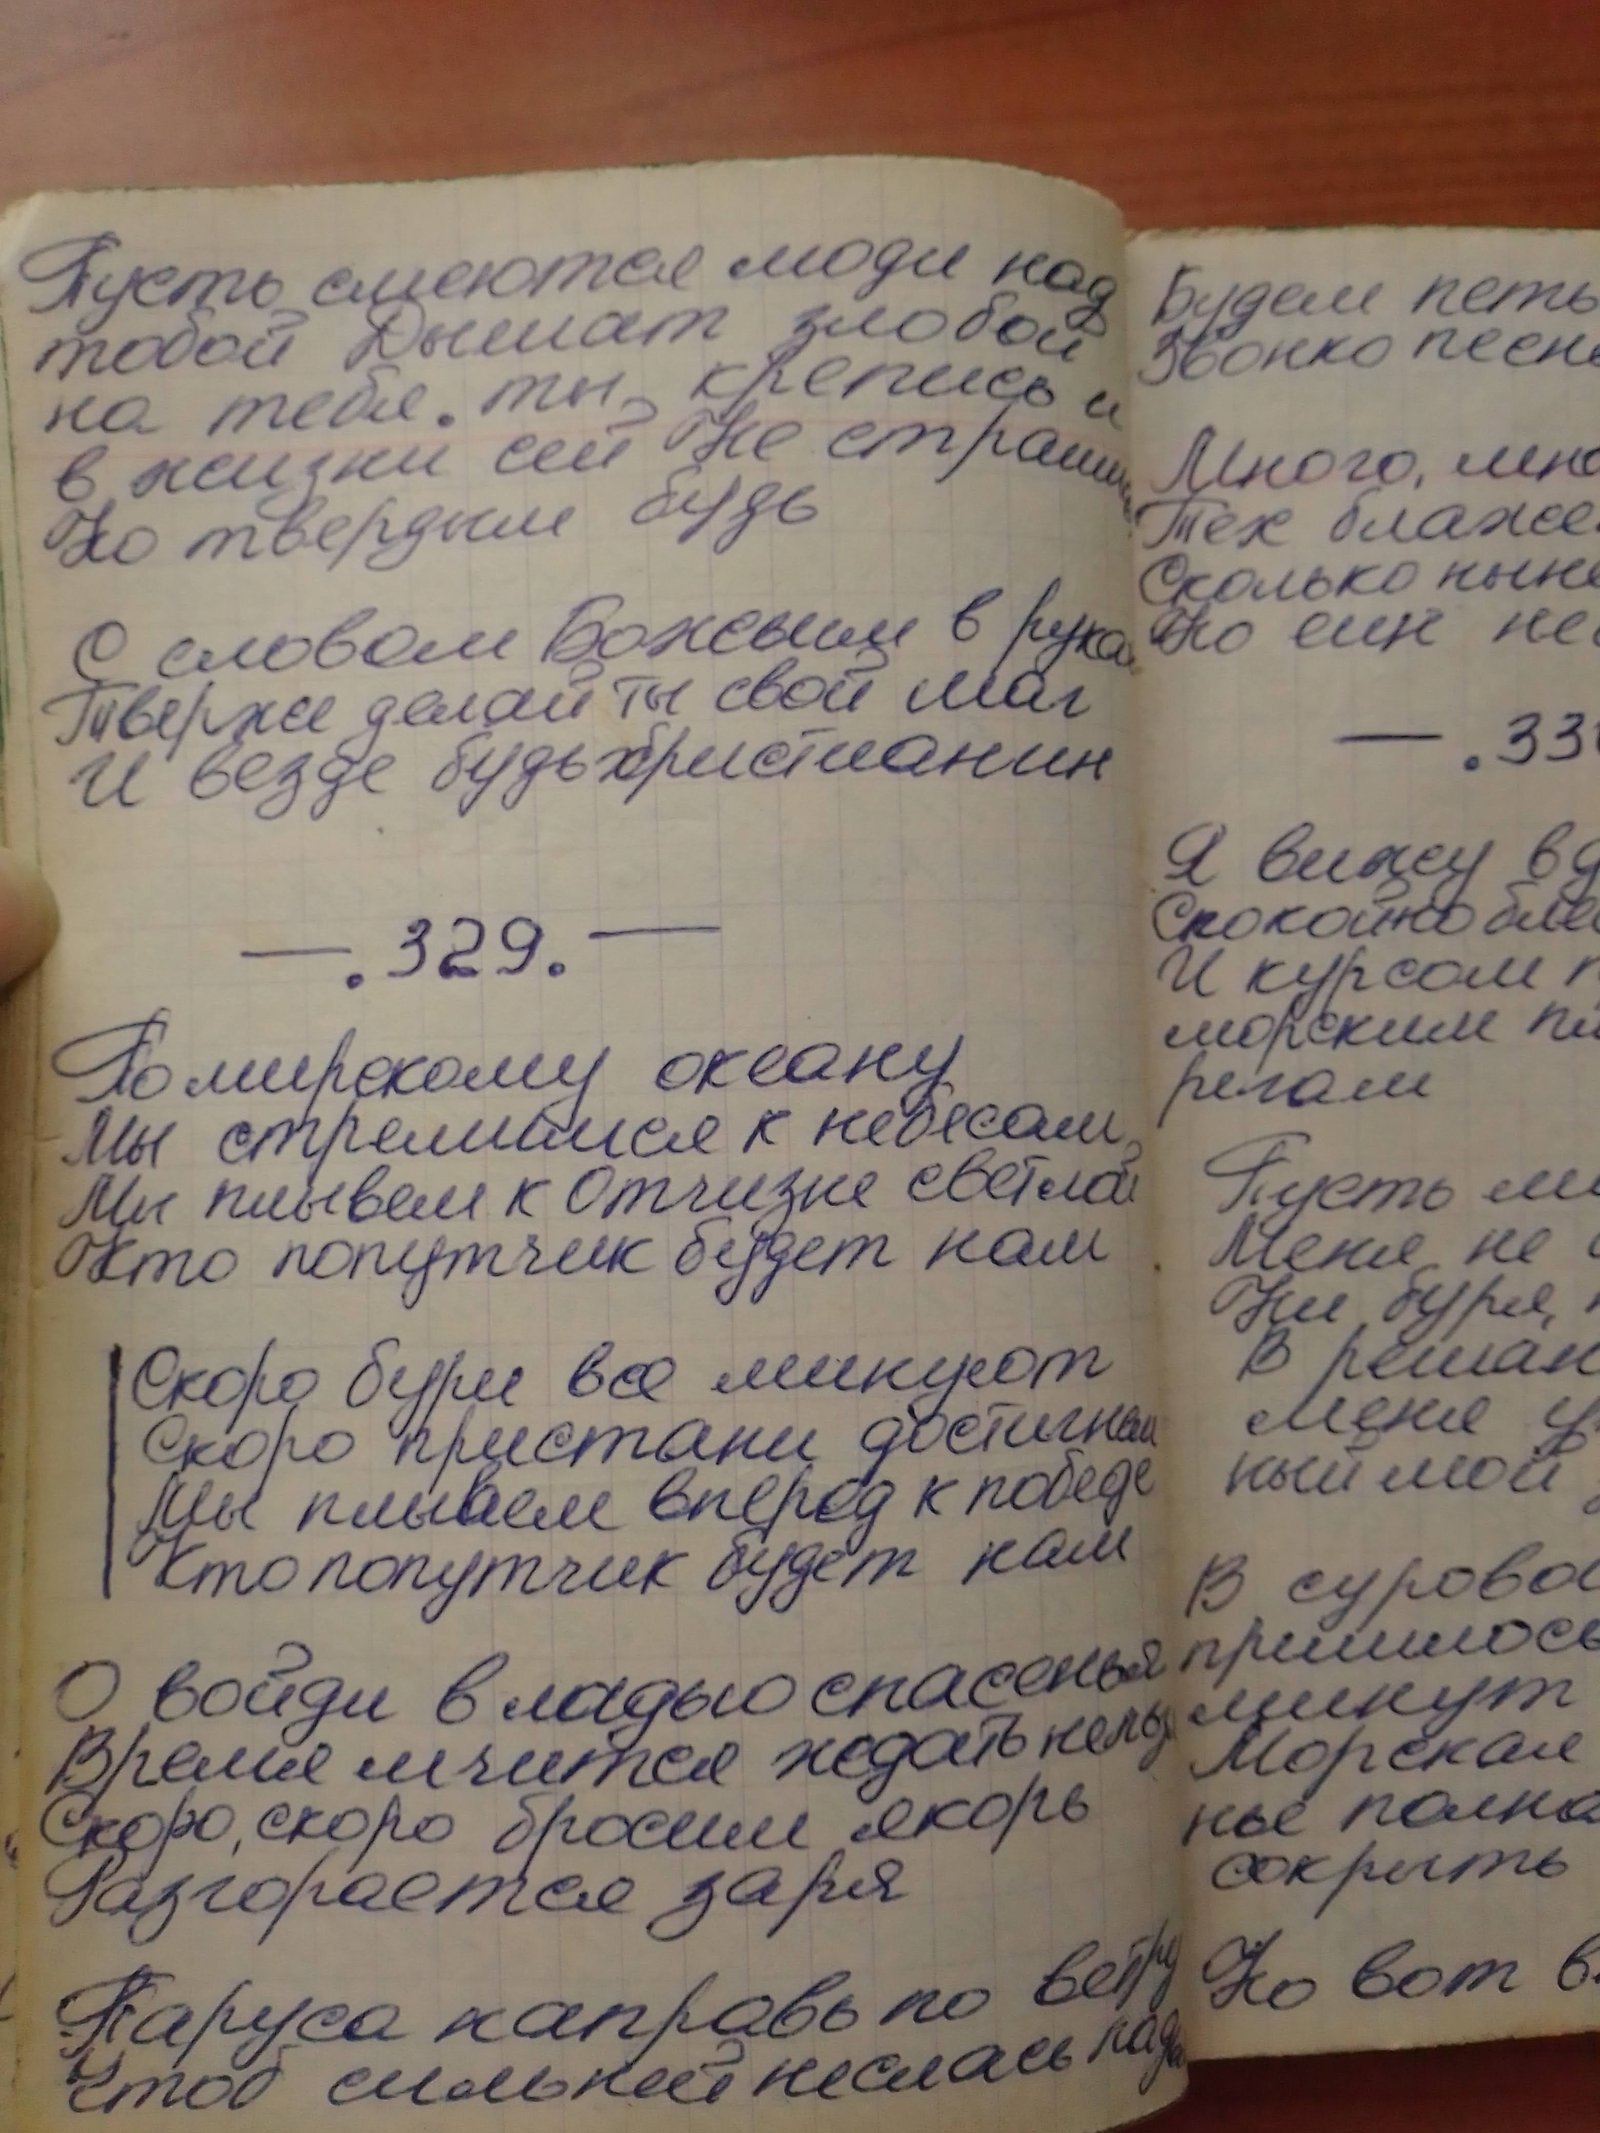 Пусть смеются люди над
тобой Дышат злобой
на тебя. ты, крепись и
в жизни сей Не страшись
Но твердым будь
С словом Божьим в руках
Тверже делай ты свой шаг
И везде будь христианин
— .329. —
По мирскому океану
Мы стремимся к небесам,
Мы плывем к Отчизне светлой
Кто попутчик будет нам
Скоро бури все минуют
Скоро пристани достигнем
Мы плывем вперед к победе
Кто попутчик будет нам
О войди в ладью спасенья
Время мчится ждать нельзя
Скоро, скоро бросим якорь
Разгорается заря
Паруса направь по ветру
Чтоб сильней неслась ладья
Будем петь
Звонко песн
Много, мно
Тех блаже
Сколько ныне
Но еще не
— .33
Я вижу в д
Спокойно бле
И курсом п
морским пи
регам
Пусть
Меня не
Ни буря,
В решан
меня у
ный мой
В сурово
пришлось
минут
Морская
нье полна
сокрыть
Но вот в